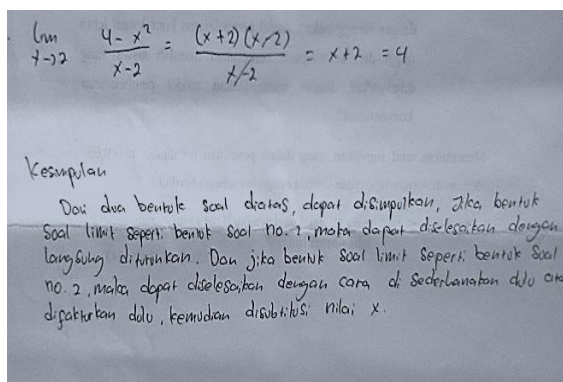 lim x→2 4 - x² / x-2 = (x+2)(x-2) / x-2 = x+2 = 4
Kesimpulan
Dari dua bentuk soal diatas, dapat disimpulkan, Jika bentuk
Soal limit seperti bentuk soal no. 1, maka dapat diselesaikan dengan
langsung diturunkan. Dan jika bentuk soal limit seperti bentuk soal
no. 2, maka dapat diselesaikan dengan cara di sederhanakan dulu ata
difaktorkan dulu, kemudian disubtitusi nilai x.